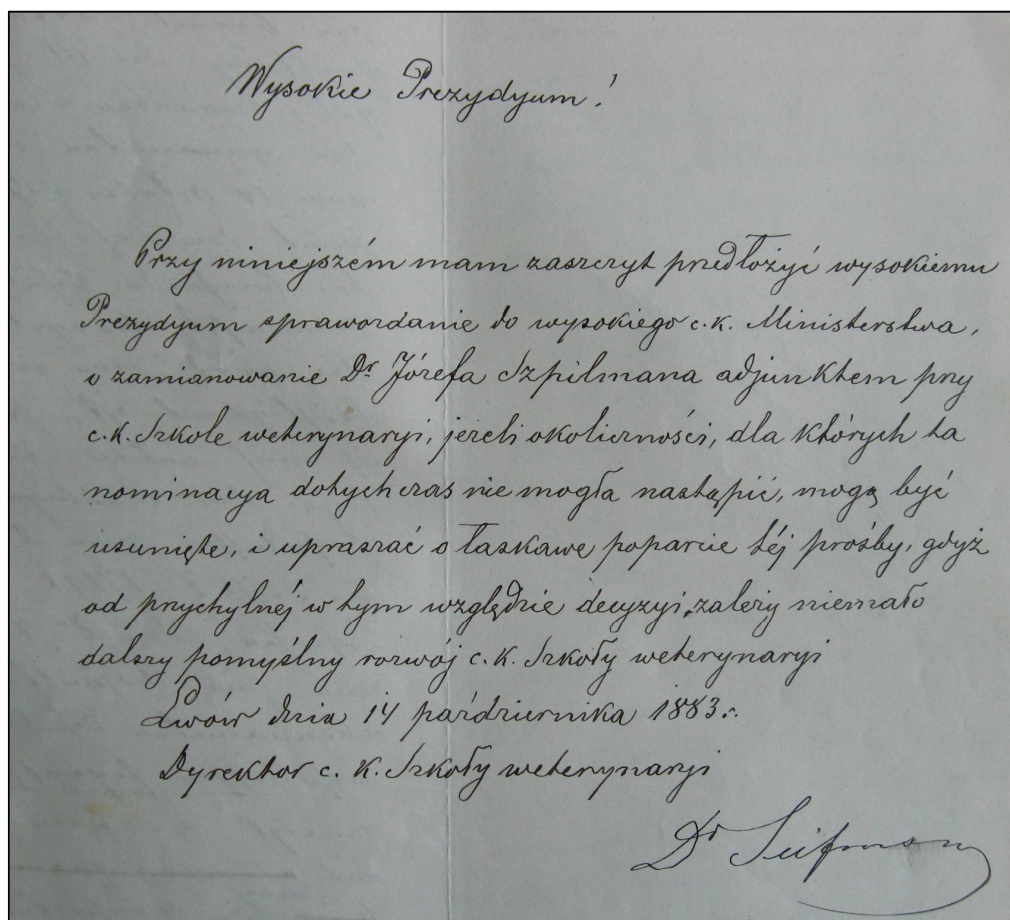 Wysokie Prezydyum!
Przy niniejszém mam zaszczyt przedłożyć wysokiemu
Prezydyum sprawozdanie do wysokiego c.k. Ministerstwa,
o zamianowanie Dr Józefa Szpilmana adjunktem przy
c.k. Szkole weterynaryi, jeżeli okoliczności, dla których ta
nominacya dotychczas nie mogła nastąpić, mogą być
usunięte, i upraszać o łaskawe poparcie téj prośby, gdyż
od przychylnéj w tym względzie decyzyi, zależy niemało
dalszy pomyślny rozwój c.k. Szkoły weterynaryi
Lwów dnia 14 października 1883 r.
Dyrektor c. k. Szkoły weterynaryi
Dr Seifman